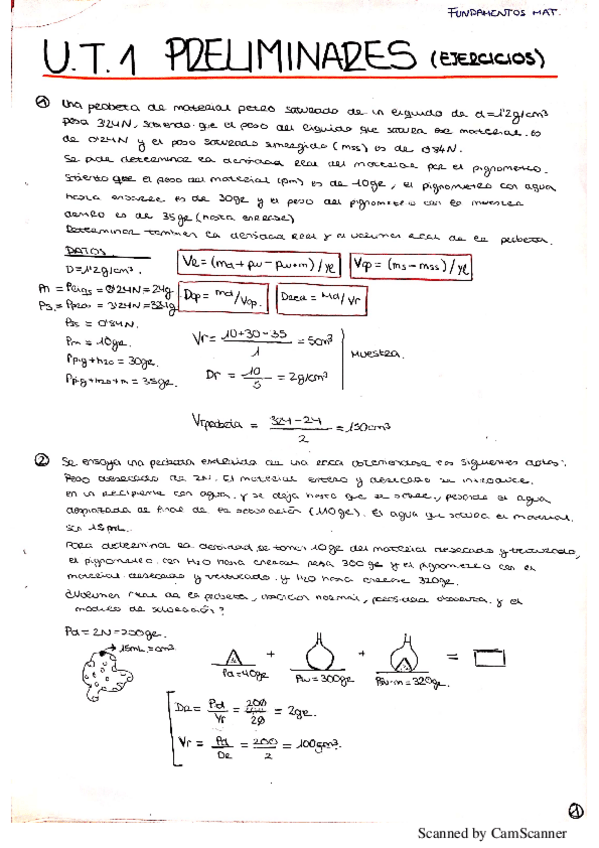 FUNDAMENTOS MAT.
U.T.1 PRELIMINARES (EJERCICIOS)
① Una probeta de material petreo saturado de un liquido de d=1'2g/cm³
pesa 3'24N, sabiendo que el peso del liquido que satura ese material es
de 0'24N y el peso saturado sumergido (mss) es de 0'84N.
Se pide determinar la densidad real del material por el pignometro.
Siendo que el peso del material (pm) es de 10gr, el pignometro con agua
hasta enrase es de 30gr y el peso del pignometro con la muestra
dentro es de 35gr (hasta enrase)
Determinar también la densidad real y el volumen real de la probeta.
DATOS
D=1'2g/cm³.
Vr = (md + pw - pw+m) / γl
Vap = (ms - mss) / γl
= 0'24N = 24g
Dap = md / Vap.
Dreal = Md / Vr
= 3'24N =
= 0'84N.
Pm = 10gr.
Ppig+h20 = 30gr.
Ppig+h20+m = 35gr.
Vr = 10+30-35 / 1 = 5cm³
Dr = 10 / 5 = 2g/cm³
Muestra.
Vrprobeta = 324-24 / 2 = 150cm³
② Se ensaya una probeta extraida de una roca obteniendose los siguientes datos:
Peso desecado de 2N. El material entero y desecado se introduce
en un recipiente con agua, y se deja hasta que se sature, pesando el agua
desplazada al final de la saturación (110gr). El agua que satura el material
son 15mL.
Para determinar la densidad, se toman 10gr del material desecado y triturado,
el pignometro con H2O hasta enrase pesa 300gr y el pignometro con el
material desecado y triturado y H2O hasta enrase 320gr.
¿Volumen real de la probeta, absorcion normal, porosidad absoluta y el
modulo de saturación?
Pd = 2N = 200gr.
15mL = cm³
+ + =
Pd = 40gr
Pw = 300gr
Pw+m = 320gr
Dr = Pd / Vr = 200 / 20 = 2gr.
Vr = Pd / Dr = 200 / 2 = 100cm³.
①
Scanned by CamScanner